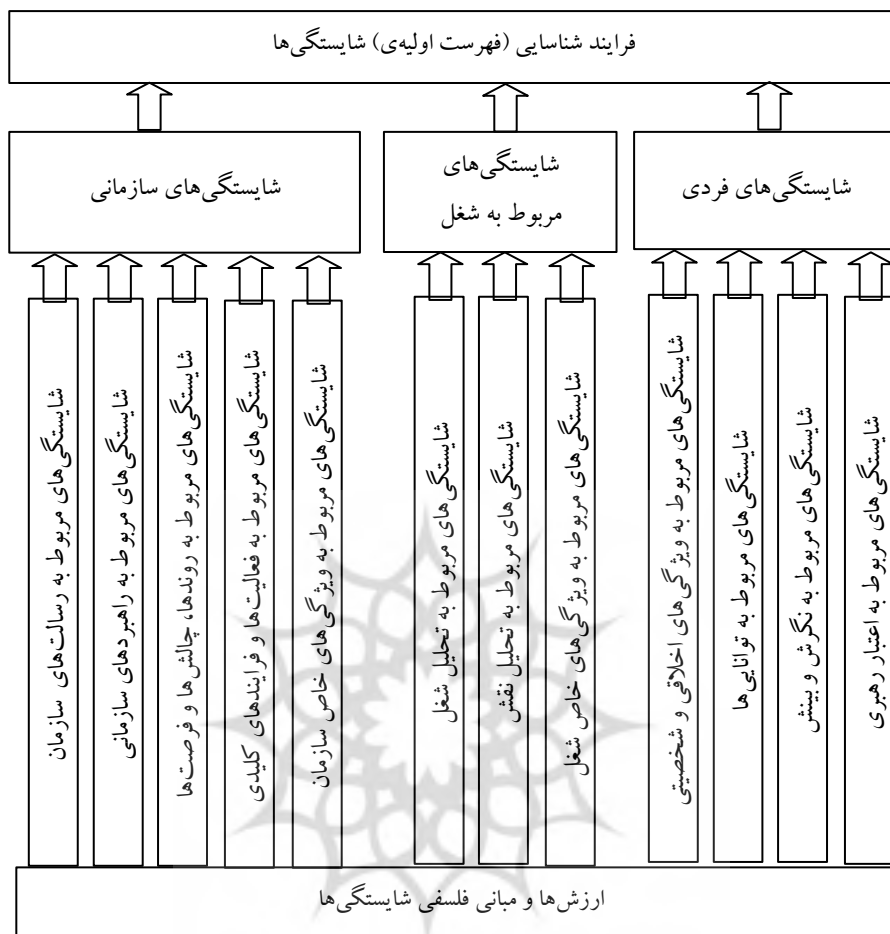 فرایند شناسایی (فهرست اولیه‌ی) شایستگی‌ها
شایستگی‌های فردی
شایستگی‌های
مربوط به شغل
شایستگی‌های سازمانی
شایستگی‌های مربوط به اعتبار رهبری
شایستگی‌های مربوط به نگرش و بینش
شایستگی‌های مربوط به توانایی‌ها
شایستگی‌های مربوط به ویژگی‌های اخلاقی و شخصیتی
شایستگی‌های مربوط به ویژگی‌های خاص شغل
شایستگی‌های مربوط به تحلیل نقش
شایستگی‌های مربوط به تحلیل شغل
شایستگی‌های مربوط به ویژگی‌های خاص سازمان
شایستگی‌های مربوط به فعالیت‌ها و فرایندهای کلیدی
شایستگی‌های مربوط به روندها، چالش‌ها و فرصت‌ها
شایستگی‌های مربوط به راهبردهای سازمانی
شایستگی‌های مربوط به رسالت‌های سازمان
ارزش‌ها و مبانی فلسفی شایستگی‌ها